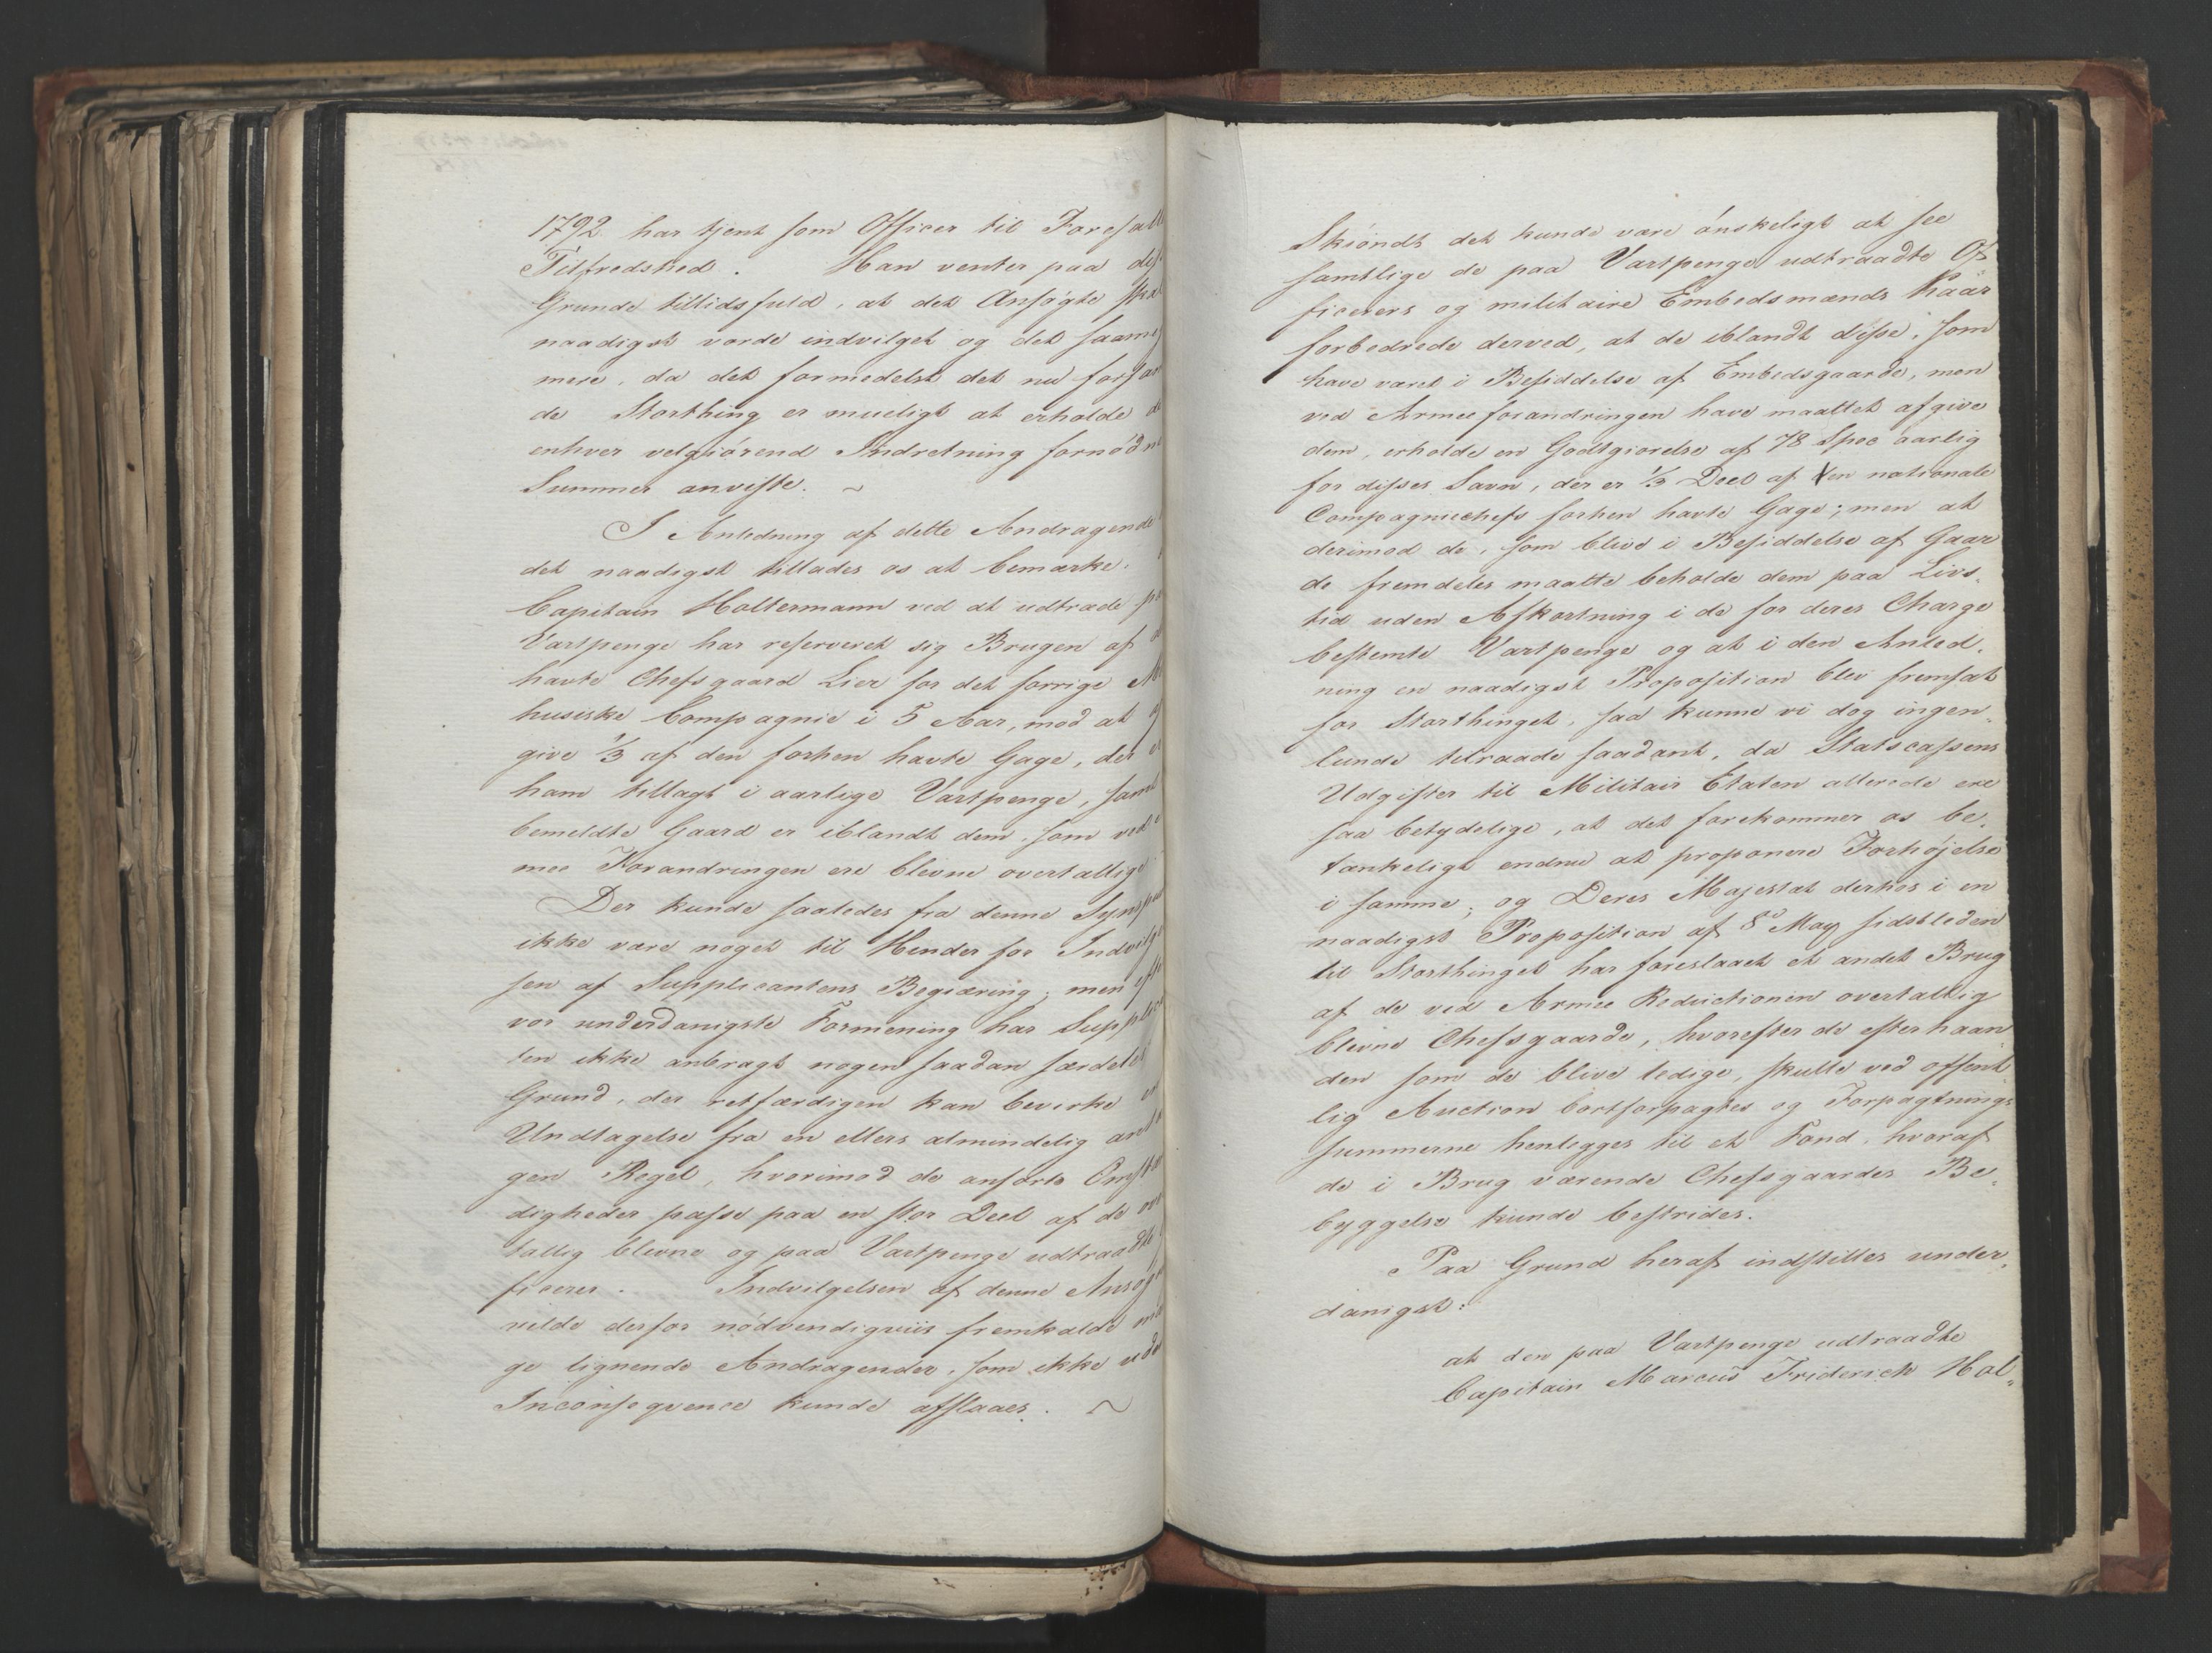 1792 har tjent som Officer til Foresatt
Tilfredshed. Han venter paa diss
Grunde tillidsfuld, at det Ansøgte skal
naadigst vorde indvilget og det saame
mere, da det formedelst det nu forsam
de Storthing er mueligt at erholde de
enhver velgiørend Indretning fornødne
Summer anviste. ~
I Anledning af dette Andragende
det naadigst tillades os at bemærke.
Capitain Holtermann ved at udtræde paa
Vartpenge har reserveret sig Brugen af
havte Chefsgaard Lier for det forrige
husiske Compagnie i 5 Aar, mod at
give 1/3 af den forhen havte Gage, der er
ham tillagt i aarlige Vartpenge, samt
bemeldte Gaard er iblandt dem, som ved
mee Forandringen ere blevne overtallige.
Der kunde saaledes fra denne Synspu
ikke være noget til Hinder for Indvilge
sen af Supplicantens Begiæring; men efter
vor underdanigste Formening har Supplic
ten ikke anbragt nogen saadan særdeles
Grund, der retfærdigen kan bevirke en
Undtagelse fra en ellers almindelig anta
gen Regel, hvorimod de anførte Omstæn
digheder passe paa en stor Deel af de over
tallig blevne og paa Vartpenge udtraadte
ficerer. Indvilgelsen af denne Ansøg
vilde derfor nødvendigviis fremkalde man
ge lignende Andragender, som ikke uden
Inconseqvence kunde afslaaes. ~
Skiøndt det kunde være ønskeligt at see
samtlige de paa Vartpenge udtraadte Of
ficerers og militaire Embedsmænds Kaar
forbedrede derved, at de iblandt disse, som
have været i Besiddelse af Embedsgaarde, men
ved Armeeforandringen have maattet afgive
dem, erholde en Godtgiørelse af 78 Spec aarlig
for disses Savn, der er 1/3 Deel af den nationale
Compagniechefs forhen havte Gage; men at
derimod de, som bleve i Besiddelse af Gaar
de fremdeles maatte beholde dem paa Livs-
tid uden Afkortning i de for deres Charge
bestemte Vartpenge og at i den Anled-
ning en naadigst Proposition blev fremsat
for Storthinget, saa kunne vi dog ingen-
lunde tilraade saadant, da Statscassens
Udgifter til Militair Etaten allerede ere
saa betydelige, at det forekommer os be-
tænkeligt endnu at proponere Forhøjelse
i samme; og Deres Majestæt derhos i en
naadigst Proposition af 8de May sidstleden
til Storthinget har foreslaaet et andet Brug
af de ved Armee Reductionen overtallig
blevne Chefsgaarde, hvorefter de efterhaan
den som de blive ledige, skulle ved offent
lig Auction bortforpagtes og Forpagtnings
summerne henlegges til et Fond, hvoraf
de i Brug værende Chefsgaardes Be-
byggelse kunde bestrides.
Paa Grund heraf indstilles under-
danigst:
at den paa Vartpenge udtraadte
Capitain Marcus Friderich Hol-